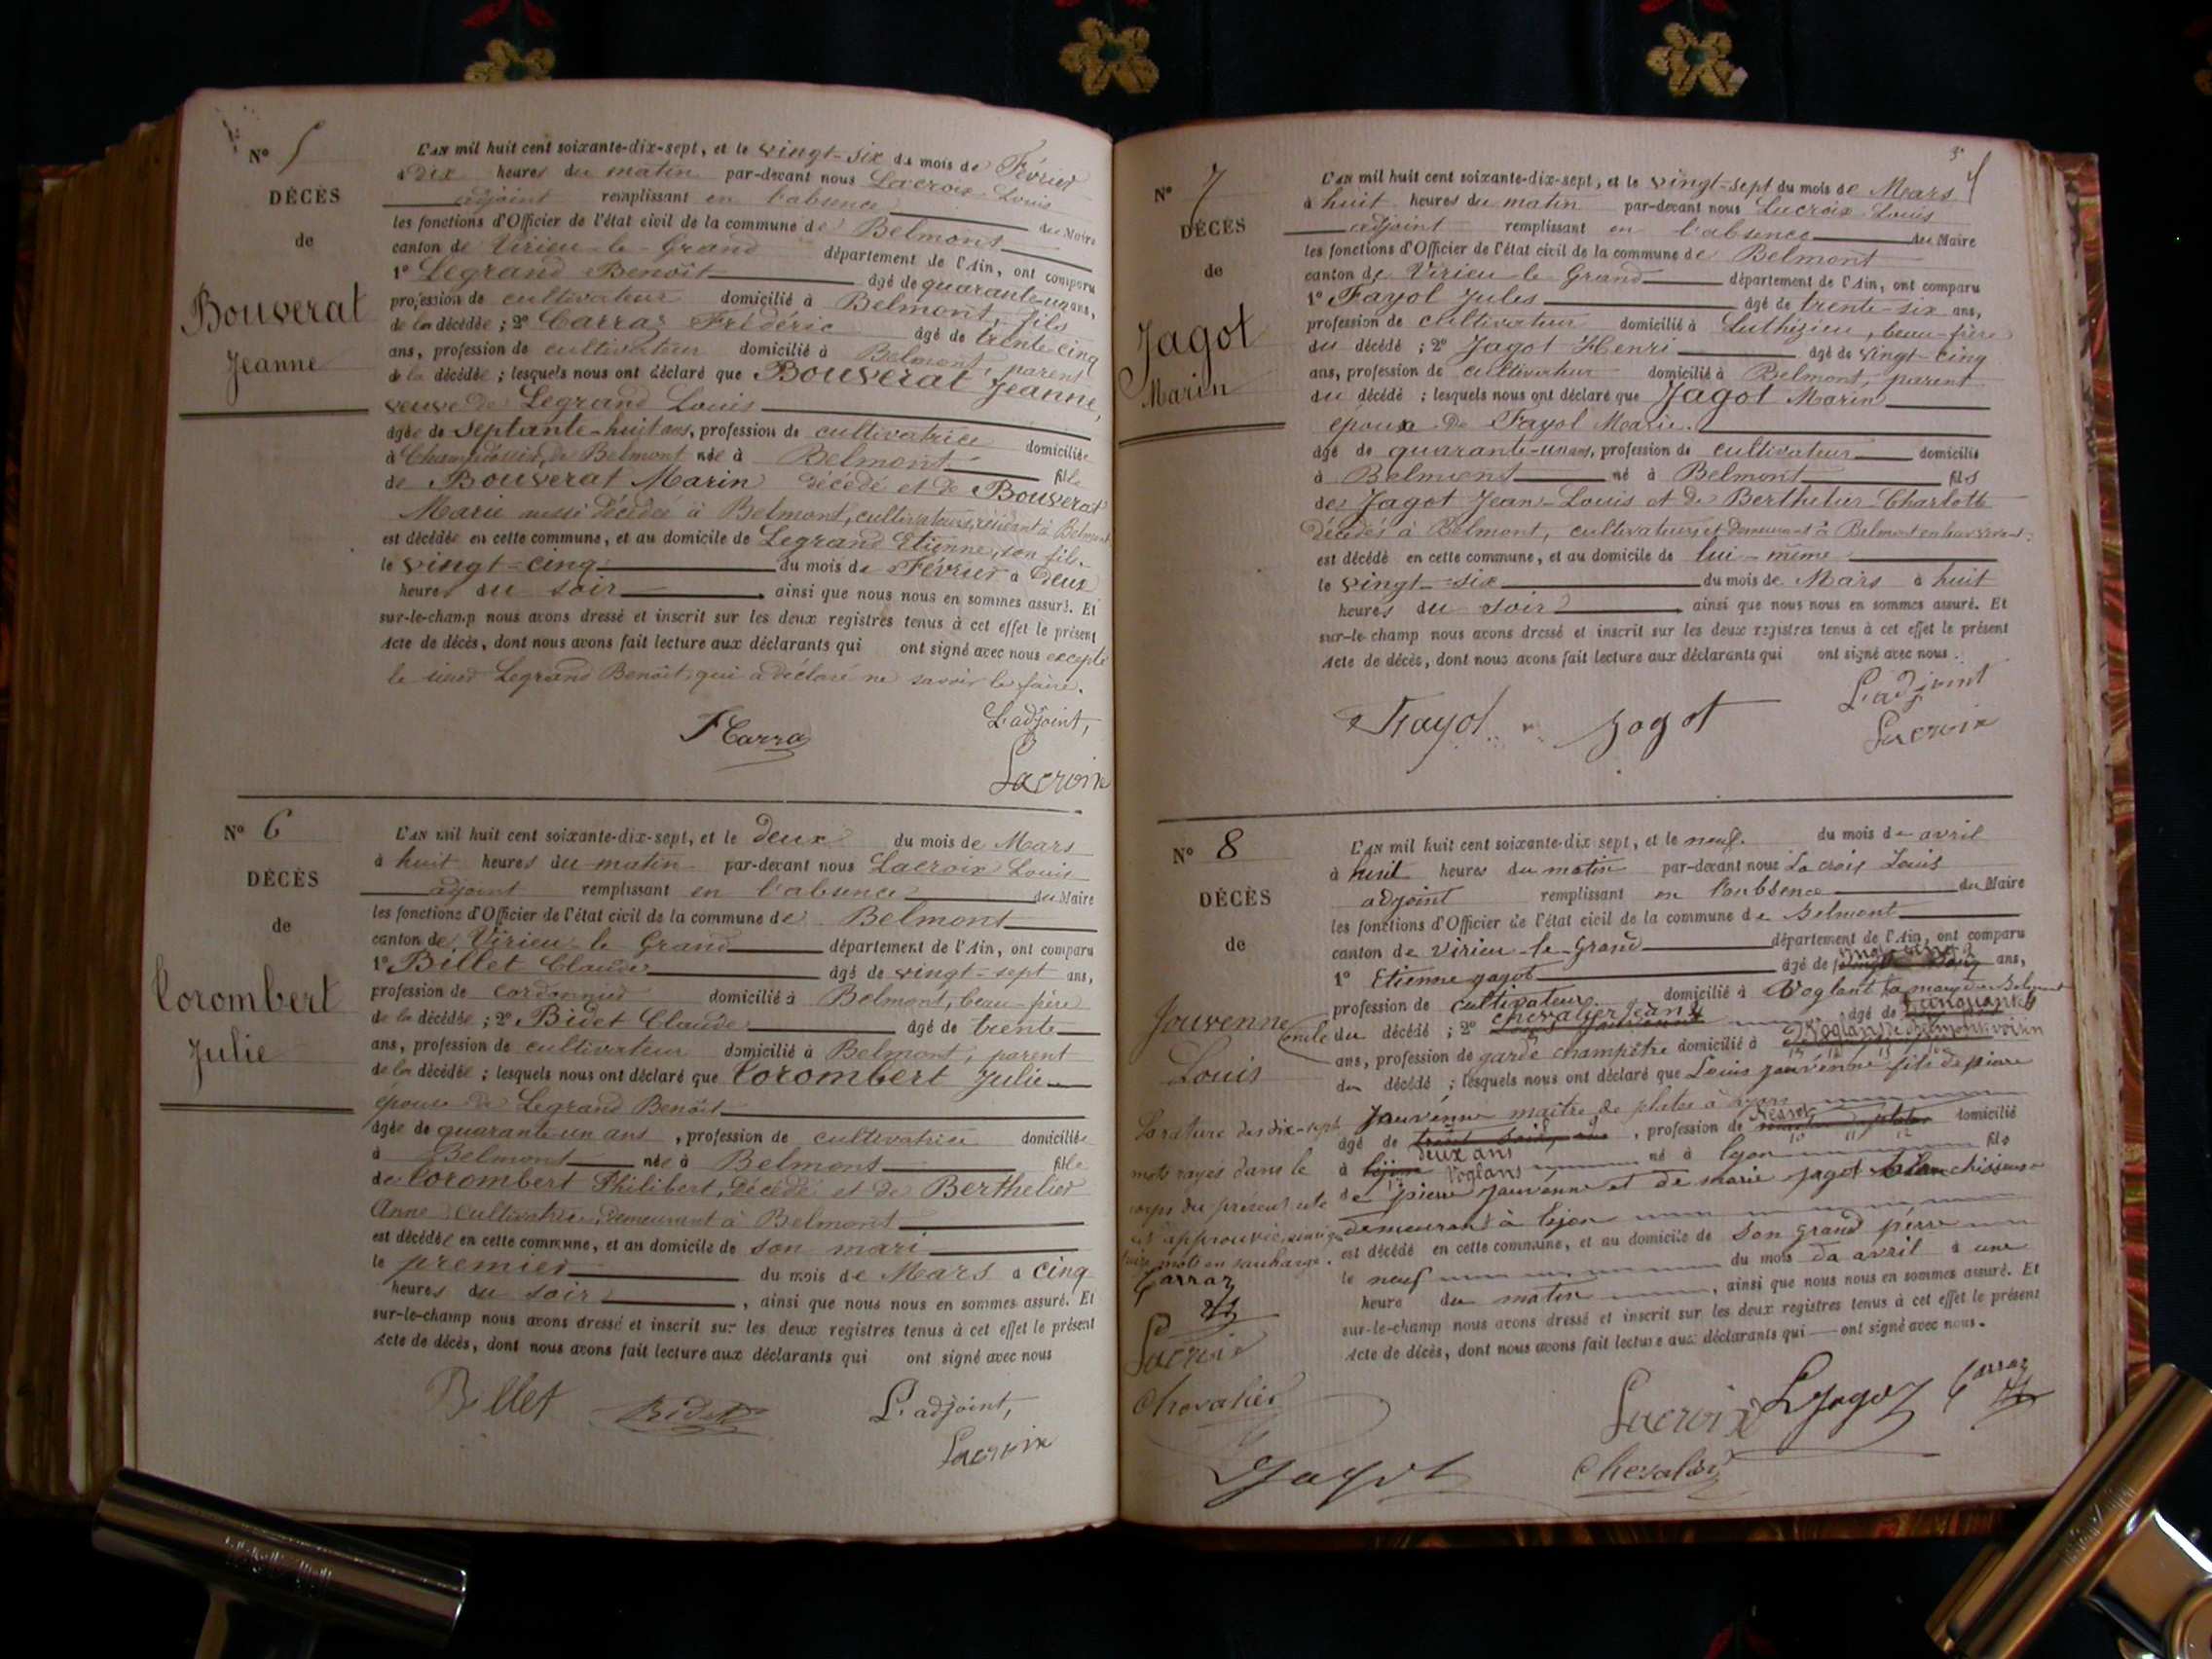 N° 5
DÉCÈS
de
Bouverat
Jeanne
L'AN mil huit cent soixante-dix-sept, et le vingt-six du mois de Février
à dix heures du matin par-devant nous Lacroix Louis
adjoint remplissant en l'absence du Maire
les fonctions d'Officier de l'état civil de la commune de Belmont
canton de Virieu-le-Grand département de l'Ain, ont comparu
1° Legrand Benoît âgé de quarante-un ans,
profession de cultivateur domicilié à Belmont, fils
de la décédée ; 2° Carraz Frédéric âgé de trente cinq
ans, profession de cultivateur domicilié à Belmont, parent
de la décédée ; lesquels nous ont déclaré que Bouverat Jeanne,
veuve de Legrand Louis
âgée de septante-huit ans, profession de cultivatrice domiciliée
à de Belmont née à Belmont fille
de Bouverat Marin décédé et de Bouverat
Marie aussi décédée à Belmont, cultivateurs, résidant à Belmont
est décédée en cette commune, et au domicile de Legrand Etienne, son fils.
le vingt-cinq du mois de Février à deux
heures du soir ainsi que nous nous en sommes assuré. Et
sur-le-champ nous avons dressé et inscrit sur les deux registres tenus à cet effet le présent
Acte de décès, dont nous avons fait lecture aux déclarants qui ont signé avec nous excepté
le Legrand Benoît, qui a déclaré ne savoir le faire.
L'adjoint,
F Carraz
Lacroix
N° 6
DÉCÈS
de
Corombert
Julie
L'AN mil huit cent soixante-dix-sept, et le deux du mois de Mars
à huit heures du matin par-devant nous Lacroix Louis
adjoint remplissant en l'absence du Maire
les fonctions d'Officier de l'état civil de la commune de Belmont
canton de Virieu-le-Grand département de l'Ain, ont comparu
1° Billet Claude âgé de vingt-sept ans,
profession de cordonnier domicilié à Belmont, beau-frère
de la décédée ; 2° Bidet Claude âgé de trente
ans, profession de cultivateur domicilié à Belmont, parent
de la décédée ; lesquels nous ont déclaré que Corombert Julie
épouse de Legrand Benoît
âgée de quarante un ans, profession de cultivatrice domiciliée
à Belmont née à Belmont fille
de Corombert Philibert, décédé et de Berthelier
Anne cultivatrice, demeurant à Belmont
est décédée en cette commune, et au domicile de son mari
le premier du mois de Mars à cinq
heures du soir, ainsi que nous nous en sommes assuré. Et
sur-le-champ nous avons dressé et inscrit sur les deux registres tenus à cet effet le présent
Acte de décès, dont nous avons fait lecture aux déclarants qui ont signé avec nous
Billet Bidet L'adjoint,
Lacroix
3
N° 7
DÉCÈS
de
Jagot
Marin
L'AN mil huit cent soixante-dix-sept, et le vingt-sept du mois de Mars
à huit heures du matin par-devant nous Lacroix Louis
adjoint remplissant en l'absence du Maire
les fonctions d'Officier de l'état civil de la commune de Belmont
canton de Virieu le Grand département de l'Ain, ont comparu
1° Fayol Jules âgé de trente-six ans,
profession de cultivateur domicilié à Luthézieu, beau-frère
du décédé ; 2° Jagot Henri âgé de vingt-cinq
ans, profession de cultivateur domicilié à Belmont, parent
du décédé ; lesquels nous ont déclaré que Jagot Marin
époux de Fayol Marie.
âgé de quarante-un ans, profession de cultivateur domicilié
à Belmont né à Belmont fils
de Jagot Jean-Louis et de Berthelier Charlotte
décédés à Belmont, cultivateurs et demeurant à Belmont en leur vivant.
est décédé en cette commune, et au domicile de lui-même
le vingt-six du mois de Mars à huit
heures du soir ainsi que nous nous en sommes assuré. Et
sur-le-champ nous avons dressé et inscrit sur les deux registres tenus à cet effet le présent
Acte de décès, dont nous avons fait lecture aux déclarants qui ont signé avec nous.
Fayol Jagot L'adjoint
Lacroix
N° 8
DÉCÈS
de
Jouvenne
Louis
L'AN mil huit cent soixante-dix sept, et le neuf du mois de avril
à huit heures du matin par-devant nous Lacroix Louis
adjoint remplissant en l'aubsence du Maire
les fonctions d'Officier de l'état civil de la commune de Belmont
canton de Virieu-le-Grand département de l'Ain, ont comparu
1° Etienne Jagot âgé de vingt ans,
profession de cultivateur domicilié à Voglant Belmont
oncle du décédé ; 2° chevalier Jean âgé de cinquante
ans, profession de garde champêtre domicilié à Voglans de Belmont voisin
du décédé ; lesquels nous ont déclaré que Louis Jouvenne fils de piere
Jouvenne maitre de plates à lyon
âgé de deux ans, profession de domicilié
à Voglans né à lyon fils
de pierre Jouvenne et de marie Jagot blanchisseuse
demeurant à lyon
est décédé en cette commune, et au domicile de son grand pérre
le neuf du mois da avril à une
heure du matin, ainsi que nous nous en sommes assuré. Et
sur-le-champ nous avons dressé et inscrit sur les deux registres tenus à cet effet le présent
Acte de décès, dont nous avons fait lecture aux déclarants qui ont signé avec nous.
La rature des dix-sept
mots rayés dans le
corps du présent acte
est approuvée, ainsi que
mots en surcharge.
Carraz
Lacroix
Chevalier
Jagot
Lacroix Jagot Carraz
Chevalier